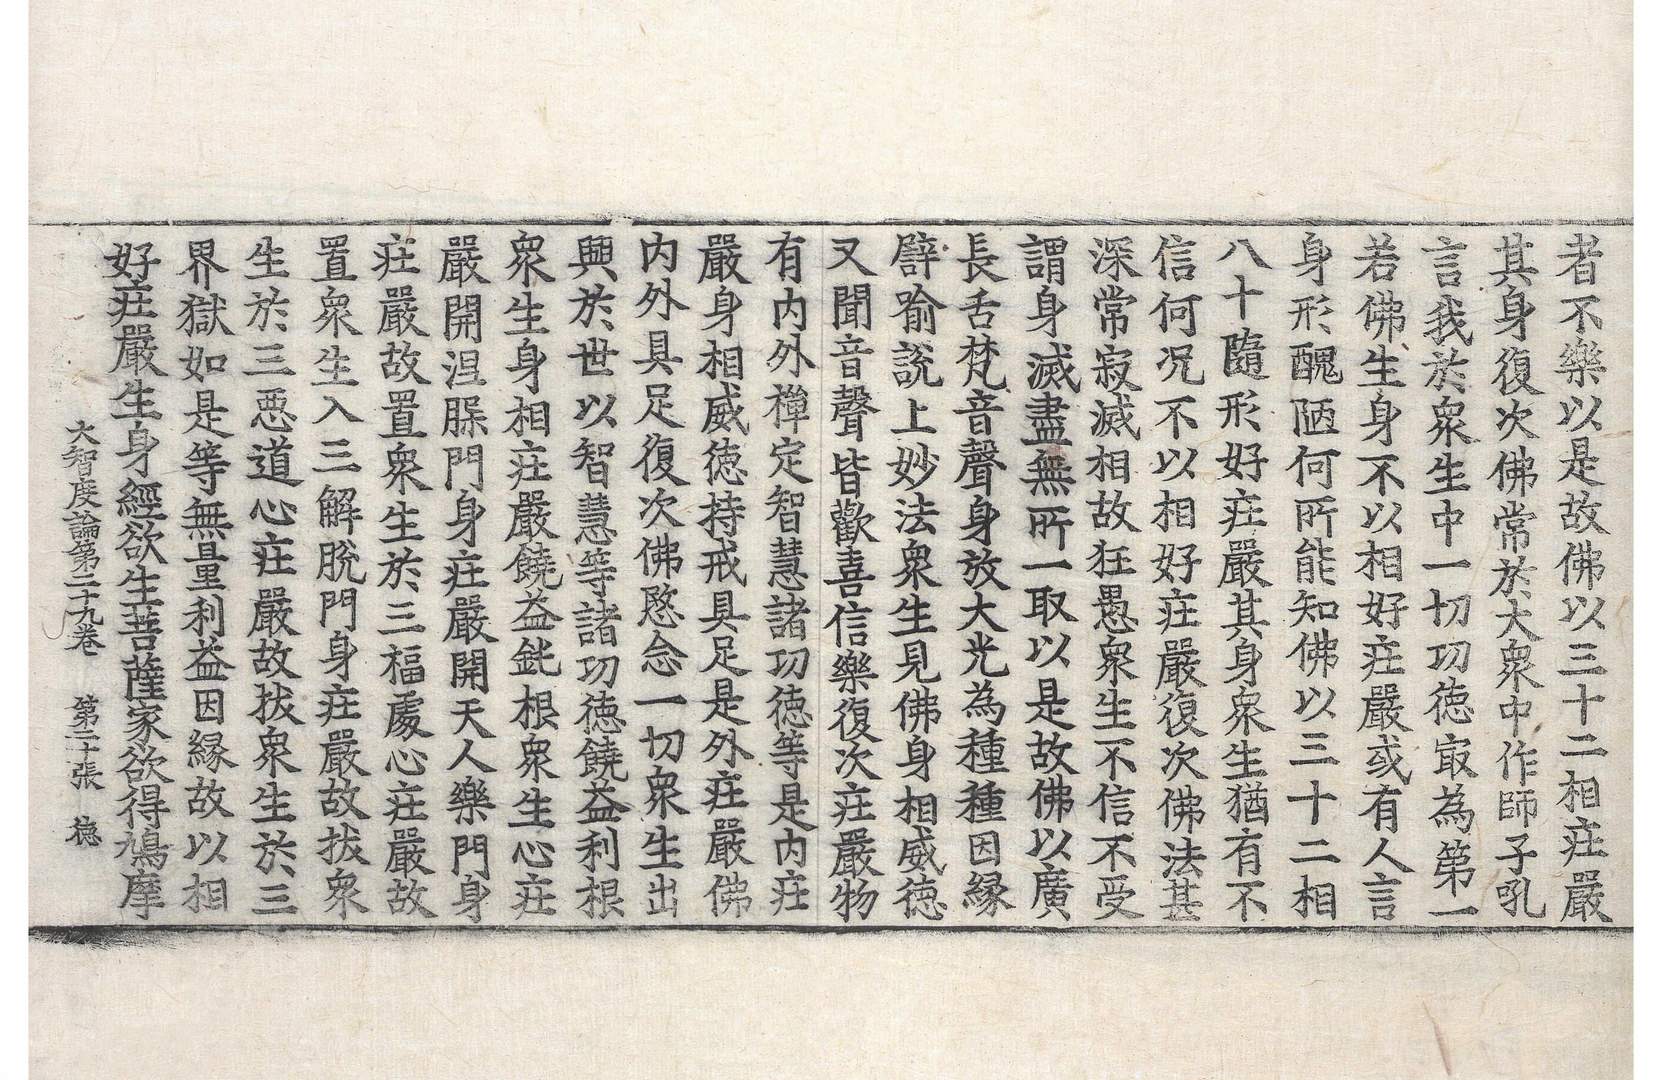 者不樂以是故佛以三十二相庄嚴
其身復次佛常於大衆中作師子吼
言我於衆生中一切功德㝡為第一
若佛生身不以相好庄嚴或有人言
身形醜陋何所能知佛以三十二相
八十隨形好庄嚴其身衆生猶有不
信何況不以相好庄嚴復次佛法甚
深常寂滅相故狂愚衆生不信不受
謂身滅盡無所一取以是故佛以廣
長舌梵音聲身放大光為種種因緣
譬喻說上妙法衆生見佛身相威德
又聞音聲皆歡喜信樂復次庄嚴物
有內外禪定智慧諸功德等是內庄
嚴身相威德持戒具足是外庄嚴佛
內外具足復次佛愍念一切衆生出
興於世以智慧等諸功德饒益利根
衆生身相庄嚴饒益鈍根衆生心庄
嚴開涅槃門身庄嚴開天人樂門身
庄嚴故置衆生於三福處心庄嚴故
置衆生入三解脫門身庄嚴故拔衆
生於三惡道心庄嚴故拔衆生於三
界獄如是等無量利益因緣故以相
好庄嚴生身經欲生菩薩家欲得鳩摩
大智度論第二十九卷 第二十張 德